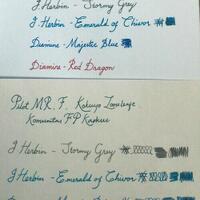 J Herbin - Stormy Grey
J Herbin - Emerald of Chivor
Diamine - Majestic Blue
Diamine - Red Dragon
Pilot MR. F. Kokuyo Looseleaf
Komunitas FP Kaskus
J Herbin - Stormy Grey
J Herbin - Emerald of Chivor
Diamine - Majestic Blue